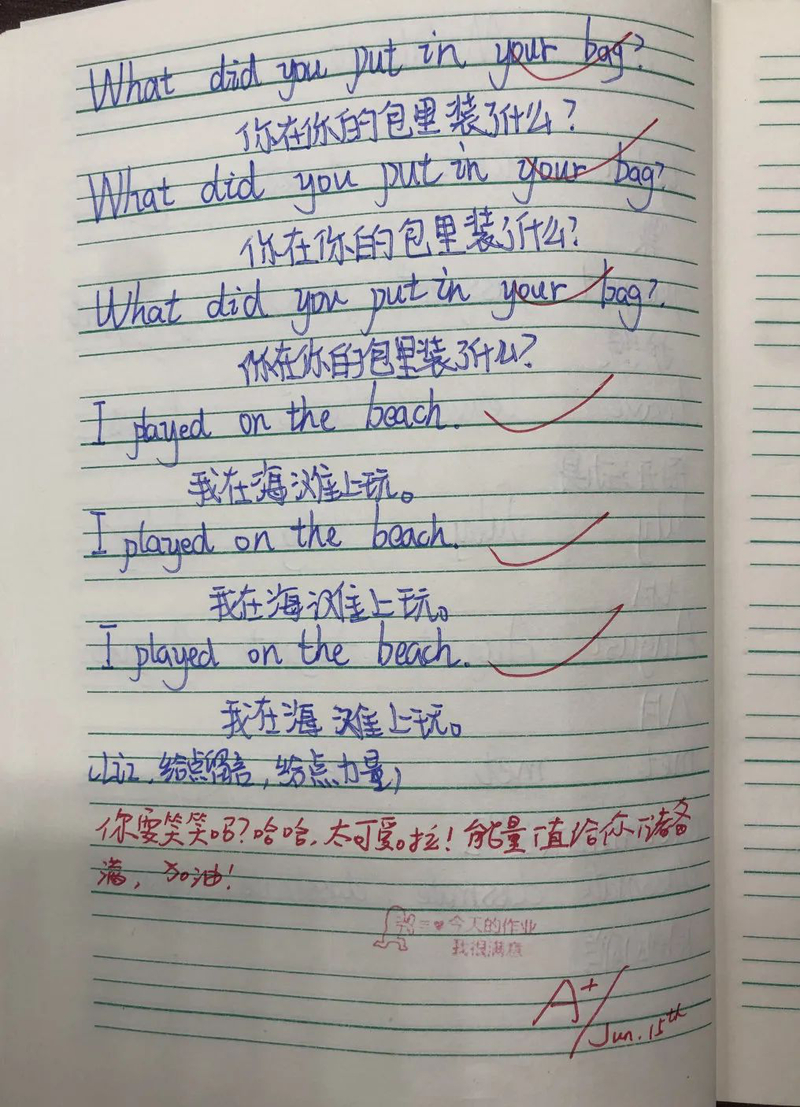 What did you put in your bag?
你在你的包里装了什么?
What did you put in your bag?
你在你的包里装了什么?
What did you put in your bag?
你在你的包里装了什么?
I played on the beach.
我在海滩上玩。
I played on the beach.
我在海滩上玩。
I played on the beach.
我在海滩上玩。
给点留言,给点力量)
你要笑笑吗?哈哈,太可爱啦!能量值给你储备
满,加油!
今天的作业
我很满意
A+
Jun. 15th